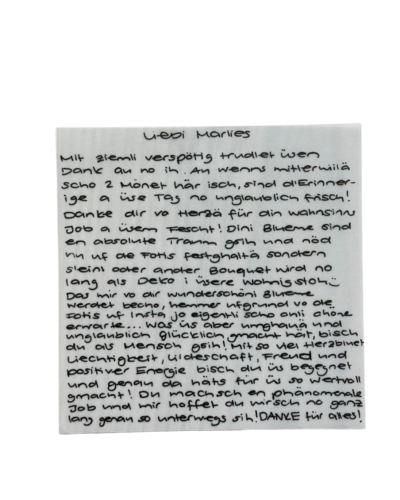 Liebi Marlies
Mit ziemli verspötig trudlet üsen
Dank au no ih. Au wenns mittlerwiilä
scho 2 Mönet här isch, sind d'Erinner-
ige a üse Tag no unglaublich frisch!
Danke dir vo Herzä für din wahnsinns
Job a üsem Fescht! Dini Blueme sind
en absolute Traum gsih und nöd
nu uf de Fotis festghaltä sondern
s'eint oder ander Bouquet wird no
lang als Deko i üsere Wohnig stoh
Das mir vo dir wunderschöni Blueme
werdet becho, hemmer ufgrund vo de
Fotis uf Insta jo eigentli scho ahli chöne
erwarte... Was üs aber umghaua und
unglaublich glücklich gmacht hät, bisch
du als Mensch gsih! Mit so viel Herzbluet
Liechtigkeit, Lideschaft, Freud und
positiver Energie bisch du üs begegnet
und genau da häts für üs so wertvoll
gmacht! Du machsch en phänomenale
Job und mir hoffet du wirsch no ganz
lang genau so unterwegs sih! DANKE für alles!